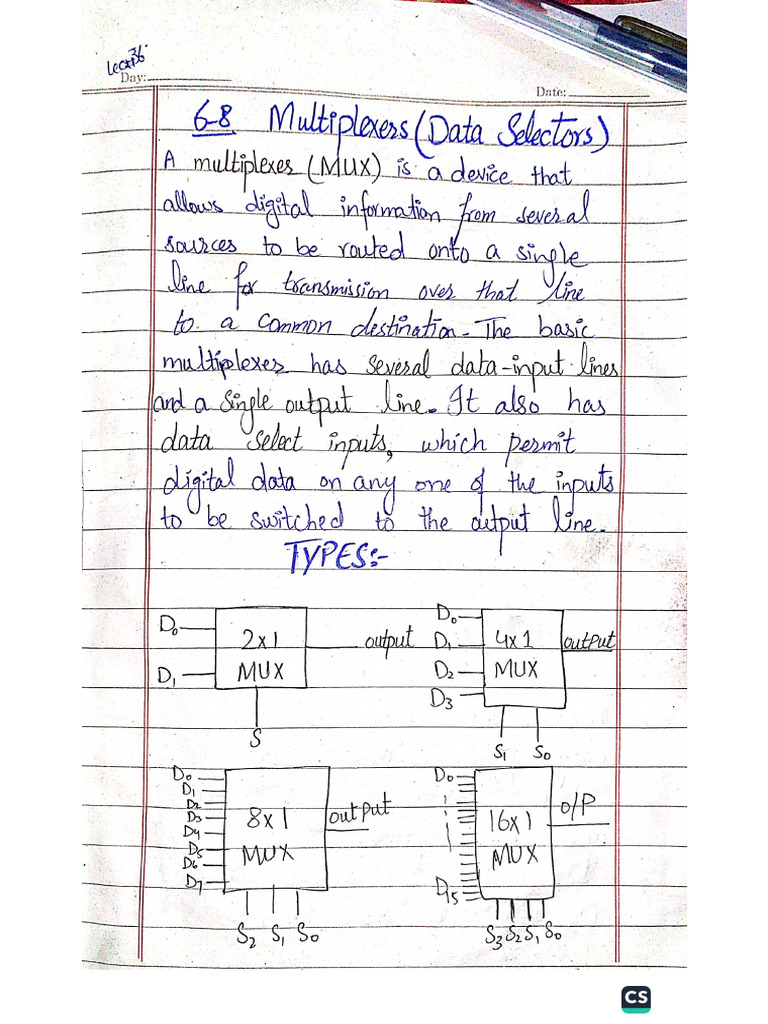 Lec#36
Day:
Date:
6-8 Multiplexers (Data Selectors)
A multiplexes (MUX) is a device that
allows digital information from several
sources to be routed onto a single
line for transmission over that line
to a common destination. The basic
multiplexes has several data-input lines
and a single output line. It also has
data select inputs, which permit
digital data on any one of the inputs
to be switched to the output line.
TYPES:-
D0
D1
2x1
MUX
output
S
D0
D1
D2
D3
4x1
MUX
output
S1 S0
D0
D1
D2
D3
D4
D5
D6
D7
8x1
MUX
output
S2 S1 S0
D0
D15
16x1
MUX
O/P
S3 S2 S1 S0
CS